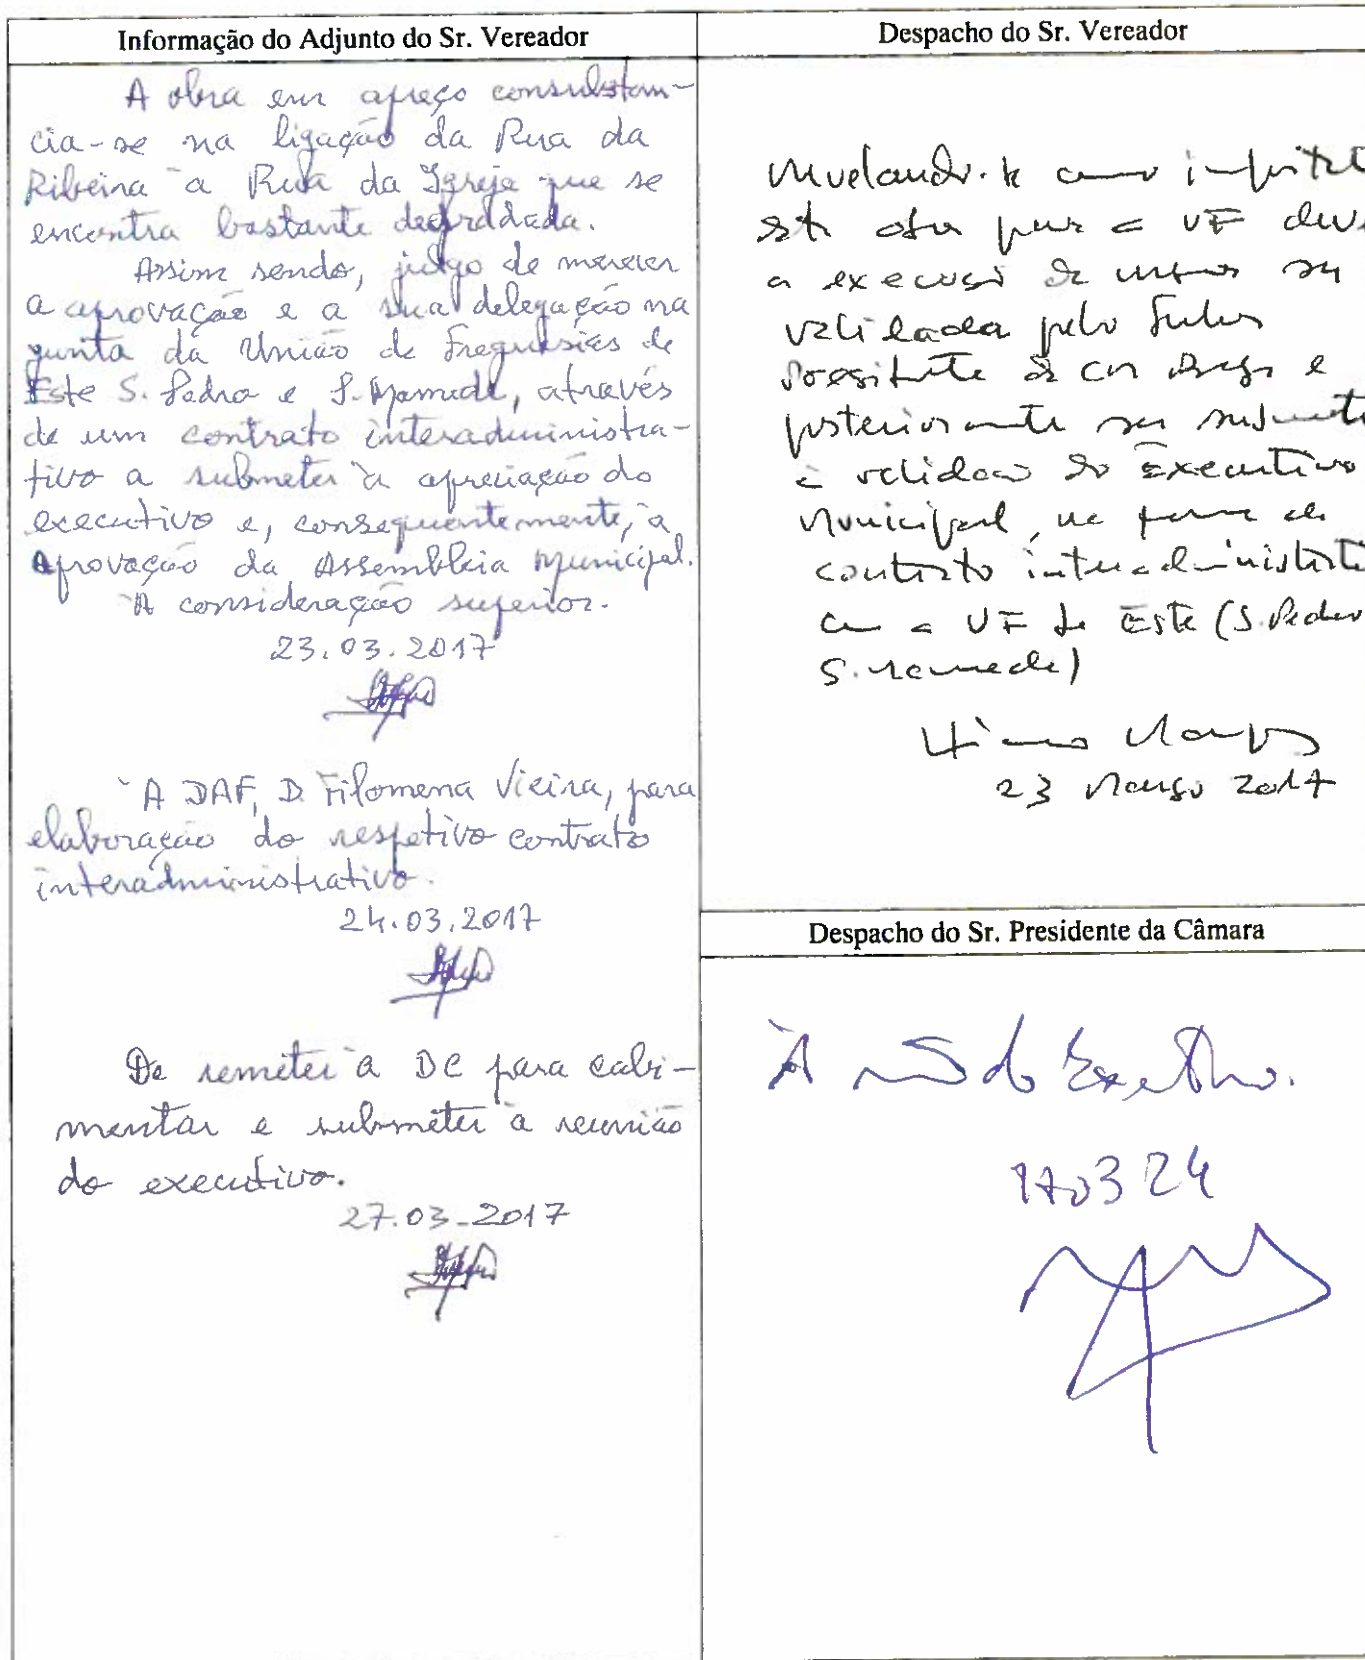 Informação do Adjunto do Sr. Vereador
A obra em apreço consubstan-
cia-se na ligação da Rua da
Ribeira à Rua da Igreja que se
encontra bastante degradada.
Assim sendo, julgo de merecer
a aprovação e a sua delegação na
junta da União de Freguesias de
Este S. Pedro e S. Mamede, através
de um contrato interadministra-
tivo a submeter à apreciação do
executivo e, consequentemente, à
aprovação da Assembleia Municipal.
À consideração superior.
23.03.2017
À DAF, D. Filomena Vieira, para
elaboração do respetivo contrato
interadministrativo.
24.03.2017
De remeter à DC para cabi-
mentar e submeter à reunião
do executivo.
27.03.2017
Despacho do Sr. Vereador
obra para a UF
a execução
validada pelo Senhor
Presidente da e
posteriormente ser
à validação do Executivo
Municipal, na forma de
contrato
com a UF de Este (S. Pedro
S. Mamede)
23 Março 2017
Despacho do Sr. Presidente da Câmara
À do Executivo.
170324